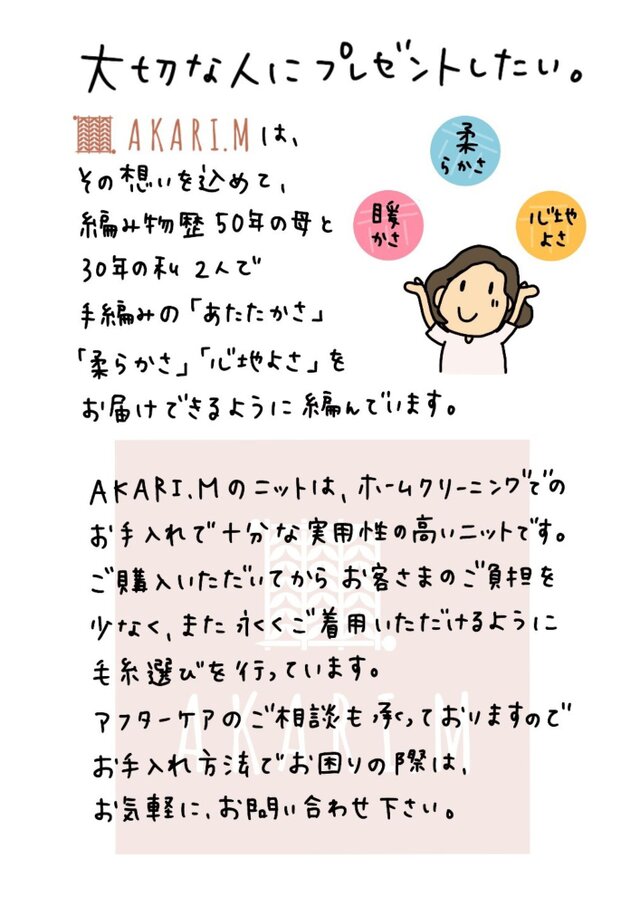 大切な人にプレゼントしたい。
AKARI.Mは、
その想いを込めて、
編み物歴50年の母と
30年の私 2人で
手編みの「あたたかさ」
「柔らかさ」「心地よさ」を
お届けできるように編んでいます。
柔
らかさ
暖
かさ
心地
よさ
AKARI.Mのニットは、ホームクリーニングでの
お手入れで十分な実用性の高いニットです。
ご購入いただいてからお客さまのご負担を
少なく、また永くご着用いただけるように
毛糸選びを行っています。
アフターケアのご相談も承っておりますので
お手入れ方法でお困りの際は、
お気軽に、お問い合わせ下さい。
AKARI.M